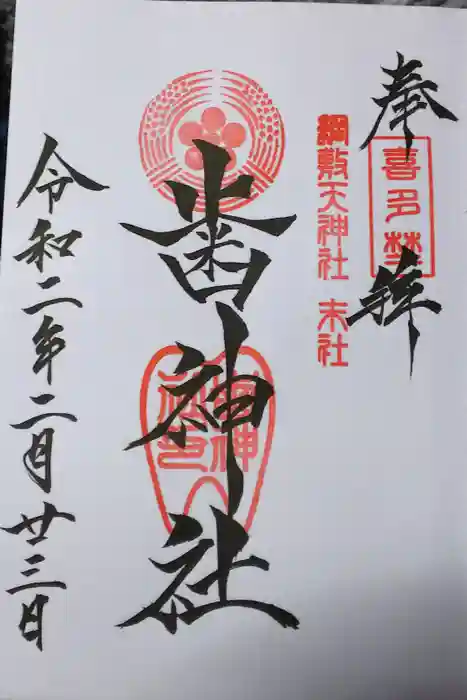 奉拝
喜多埜
綱敷天神社 末社
歯神社
歯神
社印
令和二年二月廿三日